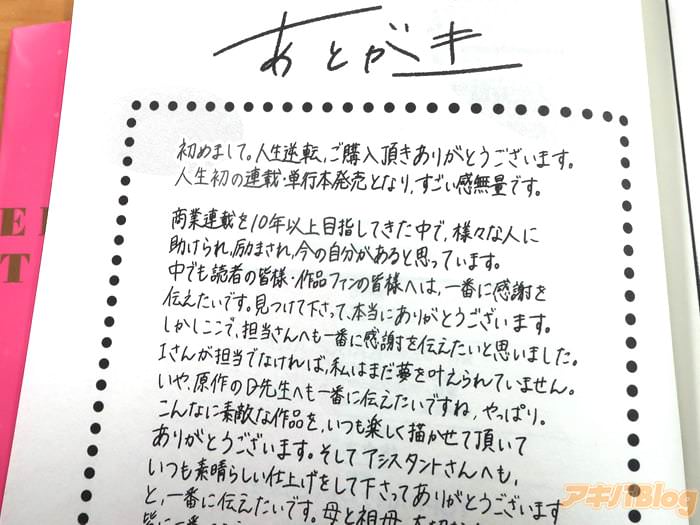 あとがき
初めまして。人生逆転,ご購入頂きありがとうございます。
人生初の連載・単行本発売となり,すごい感無量です。
商業連載を10年以上目指してきた中で,様々な人に
助けられ,励まされ,今の自分があると思っています。
中でも読者の皆様・作品ファンの皆様へは,一番に感謝を
伝えたいです。見つけて下さって,本当にありがとうございます。
しかしここで,担当さんへも一番に感謝を伝えたいと思いました。
Iさんが担当でなければ,私はまだ夢を叶えられていません。
いや,原作のD先生へも一番に伝えたいですね,やっぱり。
こんなに素敵な作品を,いつも楽しく描かせて頂いて
ありがとうございます。そしてアシスタントさんへも,
いつも素晴らしい仕上げをして下さってありがとうございます
と,一番に伝えたいです。母と祖母,
E
T
アキバBlog